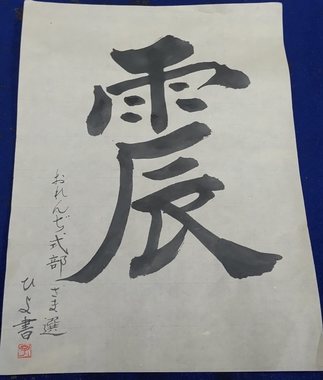 震
おれんぢ式部さま選
ひよ書